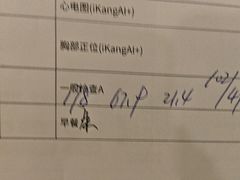 心电图(iKangAI+)
胸部正位(iKangAI+)
一般检查A
178 67.9 21.4
早餐